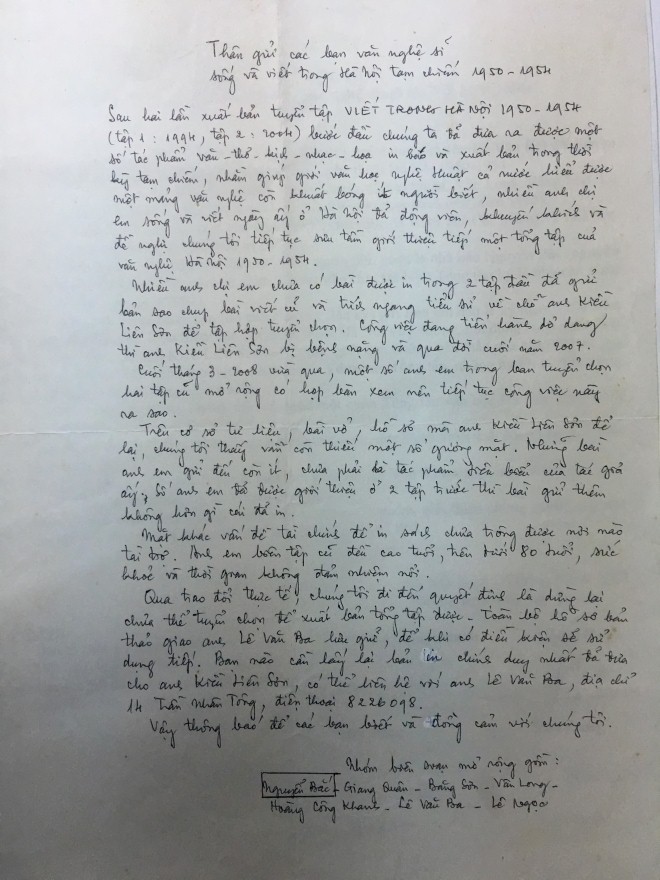 Thân gửi các bạn văn nghệ sĩ
sống và viết trong Hà Nội tạm chiếm 1950-1954
Sau hai lần xuất bản tuyển tập VIẾT TRONG HÀ NỘI 1950-1954
(tập 1: 1994, tập 2: 2004) bước đầu chúng ta đã đưa ra được một
số tác phẩm văn - thơ - kịch - nhạc - họa in báo và xuất bản trong thời
kỳ tạm chiếm, nhằm giúp giới văn học, nghệ thuật cả nước hiểu được
một mảng văn nghệ còn khuất bóng ít người biết, nhiều anh chị
em sống và viết ngày ấy ở Hà Nội đã động viên, khuyến khích và
đề nghị chúng tôi tiếp tục sưu tầm giới thiệu tiếp một tổng tập của
văn nghệ Hà Nội 1950-1954.
Nhiều anh chị em chưa có bài được in trong 2 tập đầu đã gửi
bản sao chụp bài viết cũ và trích ngang tiểu sử về chỗ anh Kiều
Liên Sơn để tập hợp tuyển chọn. Công việc đang tiến hành dở dang
thì anh Kiều Liên Sơn bị bệnh nặng và qua đời cuối năm 2007.
Cuối tháng 3-2008 vừa qua, một số anh em trong ban tuyển chọn
hai tập cũ mở rộng có họp bàn xem nên tiếp tục công việc này
ra sao.
Trên cơ sở tư liệu, bài vở, hồ sơ mà anh Kiều Liên Sơn để
lại, chúng tôi thấy vẫn còn thiếu một số gương mặt. Những bài
anh em gửi đến còn ít, chưa phải là tác phẩm tiêu biểu của tác giả
ấy. Số anh em đã được giới thiệu ở 2 tập trước thì bài gửi thêm
không hơn gì cái đã in.
Mặt khác vấn đề tài chính để in sách chưa trông được nơi nào
tài trợ. Anh em biên tập cũ đều cao tuổi, trên dưới 80 tuổi, sức
khoẻ và thời gian không đảm nhiệm nổi.
Qua trao đổi thực tế, chúng tôi đi đến quyết định là dừng lại
chưa thể tuyển chọn để xuất bản tổng tập được. Toàn bộ hồ sơ bản
thảo giao anh Lê Văn Ba lưu giữ, để khi có điều kiện sẽ sử
dụng tiếp. Bạn nào cần lấy lại bản in chính duy nhất đã đưa
cho anh Kiều Liên Sơn, có thể liên hệ với anh Lê Văn Ba, địa chỉ
14 Trần Nhân Tông, điện thoại 8226098.
Vậy thông báo để các bạn biết và đồng cảm với chúng tôi.
Nhóm biên soạn mở rộng gồm:
Nguyễn Bắc - Giang Quân - Băng Sơn - Vân Long -
Hoàng Công Khanh - Lê Văn Ba - Lê Ngọc